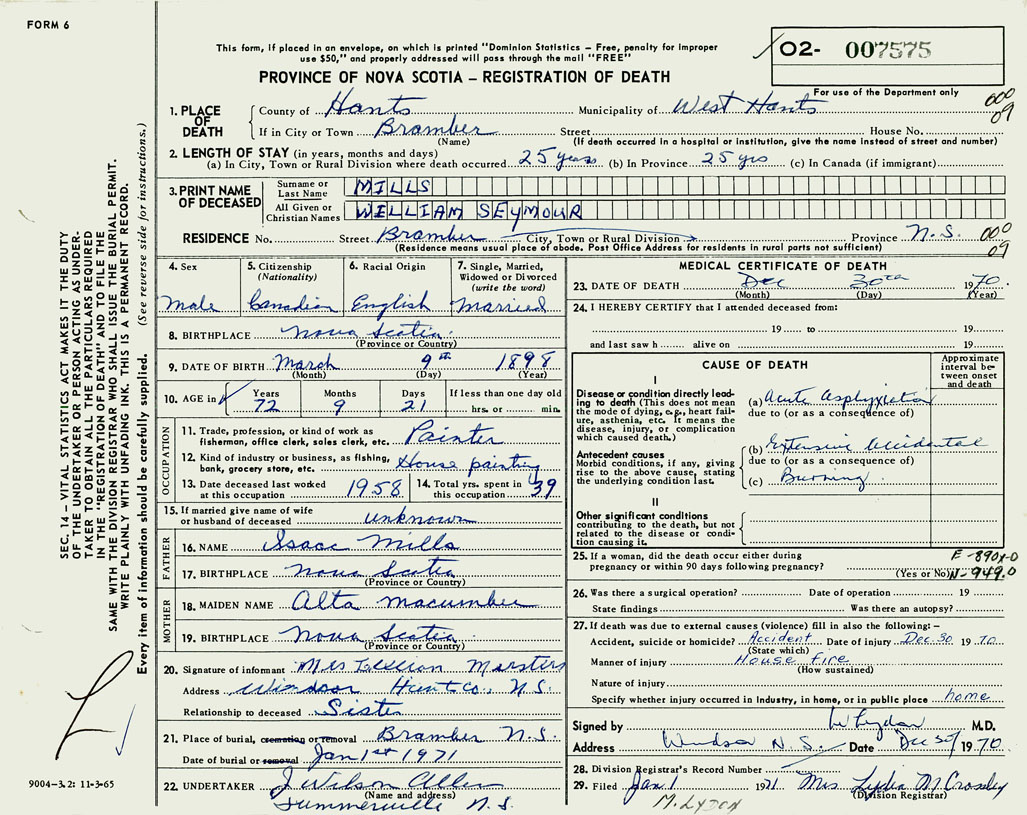 FORM 6
This form, if placed in an envelope, on which is printed "Dominion Statistics – Free, penalty for improper
use $50," and properly addressed will pass through the mail "FREE"
PROVINCE OF NOVA SCOTIA – REGISTRATION OF DEATH
O2- 007575
For use of the Department only
000
09
1. PLACE OF DEATH
County of Hants Municipality of West Hants
If in City or Town Bramber Street House No.
(Name) (If death occurred in a hospital or institution, give the name instead of street and number)
2. LENGTH OF STAY (in years, months and days)
(a) In City, Town or Rural Division where death occurred 25 years (b) In Province 25 yrs (c) In Canada (if immigrant)
3. PRINT NAME OF DECEASED
Surname or Last Name MILLS
All Given or Christian Names WILLIAM SEYMOUR
RESIDENCE No. Street Bramber City, Town or Rural Division Province N.S.
(Residence means usual place of abode. Post Office Address for residents in rural parts not sufficient)
000
09
4. Sex
Male
5. Citizenship
(Nationality)
Canadian
6. Racial Origin
English
7. Single, Married,
Widowed or Divorced
(write the word)
Married
8. BIRTHPLACE Nova Scotia
(Province or Country)
9. DATE OF BIRTH March 9th 1898
(Month) (Day) (Year)
10. AGE in
Years Months Days If less than one day old
72 9 21 hrs. or min.
OCCUPATION
11. Trade, profession, or kind of work as
fisherman, office clerk, sales clerk, etc. Painter
12. Kind of industry or business, as fishing,
bank, grocery store, etc. House painting
13. Date deceased last worked
at this occupation 1958
14. Total yrs. spent in
this occupation 39
15. If married give name of wife
or husband of deceased unknown
FATHER
16. NAME Isaac Mills
17. BIRTHPLACE Nova Scotia
(Province or Country)
MOTHER
18. MAIDEN NAME Alta Macumber
19. BIRTHPLACE Nova Scotia
(Province or Country)
20. Signature of informant Mrs Marsters
Address Windsor Hants Co., N.S.
Relationship to deceased Sister
21. Place of burial, cremation or removal Bramber N.S.
Date of burial or removal Jan 1st 1971
22. UNDERTAKER J Wilson Allen
(Name and address)
Summerville N.S.
MEDICAL CERTIFICATE OF DEATH
23. DATE OF DEATH Dec 30th 1970
(Month) (Day) (Year)
24. I HEREBY CERTIFY that I attended deceased from:
19 to 19
and last saw h alive on 19
CAUSE OF DEATH
Approximate
interval be-
tween onset
and death
I
Disease or condition directly lead-
ing to death (This does not mean
the mode of dying, e.g., heart fail-
ure, asthenia, etc. It means the
disease, injury, or complication
which caused death.)
(a) Acute Asphyxiation
due to (or as a consequence of)
Antecedent causes
Morbid conditions, if any, giving
rise to the above cause, stating
the underlying condition last.
(b) Extensive Accidental
due to (or as a consequence of)
(c) Burning
II
Other significant conditions
contributing to the death, but not
related to the disease or condi-
tion causing it.
25. If a woman, did the death occur either during
pregnancy or within 90 days following pregnancy?
(Yes or No)
E-890X-0
N-949.0
26. Was there a surgical operation? Date of operation 19
State findings Was there an autopsy?
27. If death was due to external causes (violence) fill in also the following:–
Accident, suicide or homicide? Accident Date of injury Dec 30 1970
(State which)
Manner of injury House Fire
(How sustained)
Nature of injury
Specify whether injury occurred in Industry, in home, or in public place home
Signed by M.D.
Address Windsor N.S. Date Dec 1970
28. Division Registrar's Record Number
29. Filed Jan 1 1971 Mrs. Lydia M Crossley
(Division Registrar)
M. LYDON
SEC. 14 – VITAL STATISTICS ACT MAKES IT THE DUTY
OF THE UNDERTAKER OR PERSON ACTING AS UNDER-
TAKER TO OBTAIN ALL THE PARTICULARS REQUIRED
IN THE "REGISTRATION OF DEATH" AND TO FILE THE
SAME WITH THE DIVISION REGISTRAR WHO SHALL ISSUE THE BURIAL PERMIT.
WRITE PLAINLY WITH UNFADING INK. THIS IS A PERMANENT RECORD.
Every item of information should be carefully supplied. (See reverse side for instructions.)
9004-3.2: 11-3-65